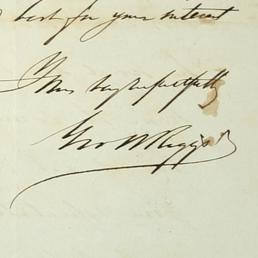 best for your interest
Yours very respectfully
Geo W Riggs